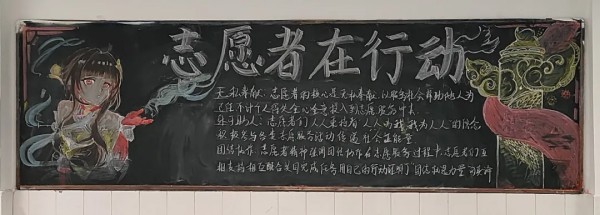 志愿者在行动
无私奉献:志愿者的核心是无私奉献,以服务社会帮助他人为
己任不计个人得失全心全意投入到志愿服务中去
乐于助人:志愿者们人人秉持着"人人为我,我为人人"的信念
积极参与各类志愿服务活动传递社会正能量
团结协作:志愿者精神强调团结协作在志愿服务过程中志愿者们互
相支持相互配合共同完成任务用自己的行动证明了团结就是力量